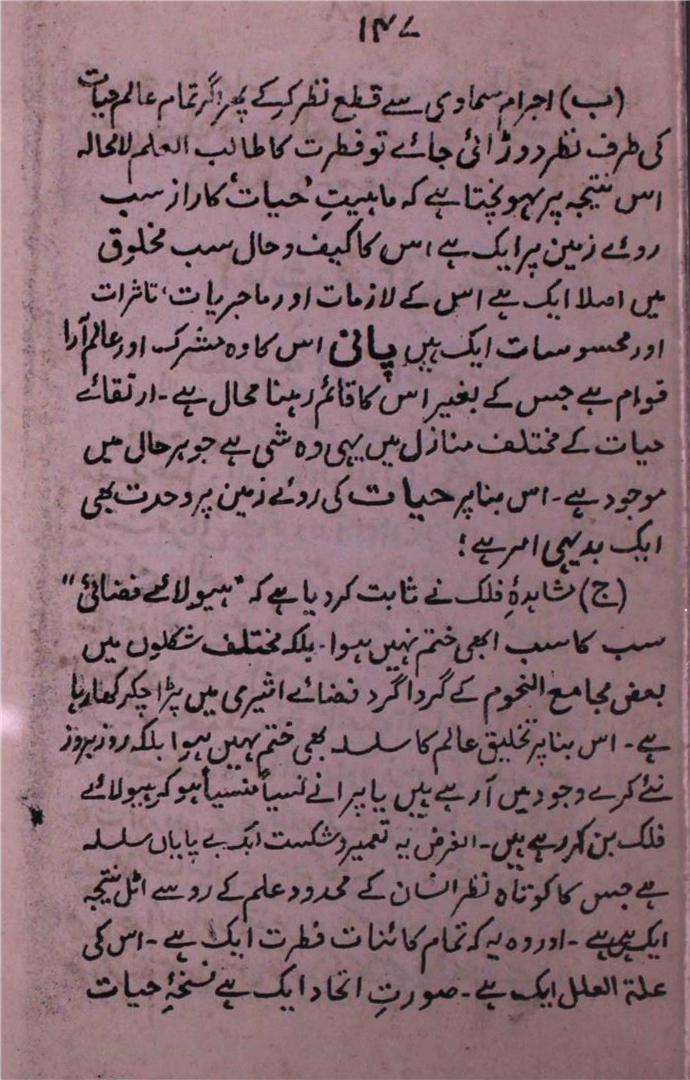 ۱۴۷
(ب) اجرام سماوی سے قطع نظر کرکے پھر اگر تمام عالم حیات
کی طرف نظر دوڑائی جائے تو فطرت کا طالب العلم لامحالہ
اس نتیجہ پر پہونچتا ہے کہ ماہیتِ 'حیات' کا راز سب
روئے زمین پر ایک ہے اس کا کیف و حال سب مخلوق
میں اصلا ایک ہے اس کے لازمات اور ماجریات، تاثرات
اور محسوسات ایک ہیں پانی اس کا وہ مشترک اور عالم آرا
قوام ہے جس کے بغیر اس کا قائم رہنا محال ہے۔ ارتقائے
حیات کے مختلف منازل میں یہی وہ شی ہے جو ہر حال میں
موجود ہے۔ اس بنا پر حیات کی روئے زمین پر وحدت بھی
ایک بدیہی امر ہے!
(ج) مشاہدۂ فلک نے ثابت کر دیا ہے کہ "ہیولائے فضائی"
سب کا سب ابھی ختم نہیں ہوا۔ بلکہ مختلف شکلوں میں
بعض مجامع النجوم کے گردا گرد فضائے اثیری میں پڑا چکر کھا رہا
ہے۔ اس بنا پر تخلیق عالم کا سلسلہ بھی ختم نہیں ہوا بلکہ روز بروز
نئے کرے وجود میں آ رہے ہیں یا پرانے نسیاً منسیاً ہو کر ہیولائے
فلک بن رہے ہیں۔ الغرض یہ تعمیر و شکست ایک بے پایاں سلسلہ
ہے جس کا کوتاہ نظر انسان کے محدود علم کے رو سے اٹل نتیجہ
ایک ہی ہے۔ اور وہ یہ کہ تمام کائنات فطرت ایک ہے۔ اس کی
علۃ العلل ایک ہے۔ صورتِ اتحاد ایک ہے نسخۂ حیات